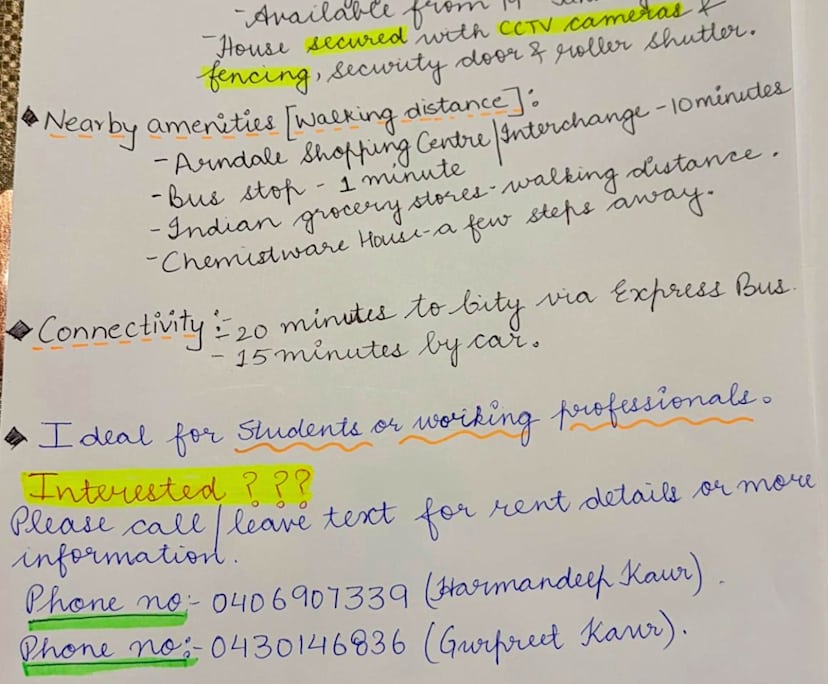 - Available from 19
- House secured with CCTV cameras &
fencing, security door & roller shutter.
◆ Nearby amenities [Walking distance]:
- Arndale Shopping Centre/Interchange - 10 minutes
- Bus stop - 1 minute
- Indian grocery stores - walking distance.
- Chemistware House - a few steps away.
◆ Connectivity :- 20 minutes to City via Express Bus.
- 15 minutes by car.
◆ Ideal for Students or working professionals.
Interested ???
Please call/leave text for rent details or more
information.
Phone no:- 0406907339 (Harmandeep Kaur).
Phone no:- 0430146836 (Gurpreet Kaur).